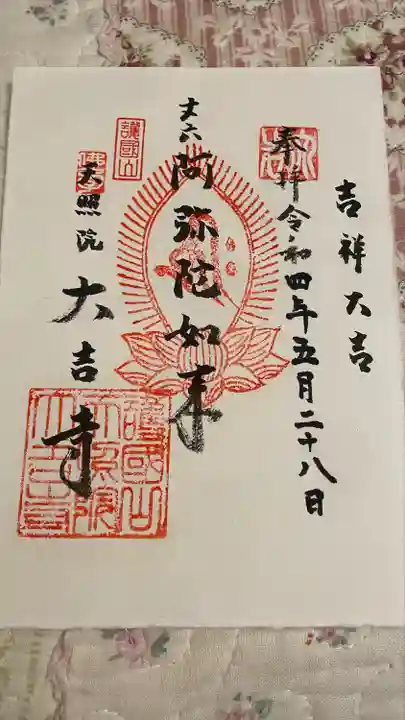 吉祥大吉
奉拝令和四年五月二十八日
丈六
阿弥陀如来
護國山
天照院
大吉寺
護國山
天照院
大吉寺